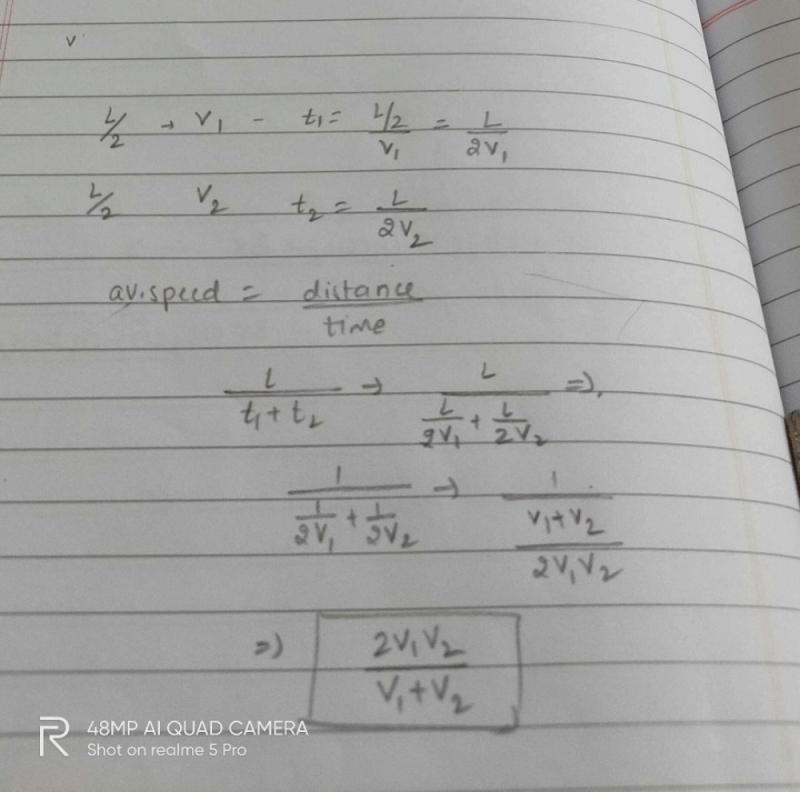 v
L/2 → V₁ - t₁ = L/2 / V₁ = L / 2V₁
L/2 V₂ t₂ = L / 2V₂
av.speed = distance / time
L / t₁ + t₂ → L / (L/2V₁ + L/2V₂) =>
1 / (1/2V₁ + 1/2V₂) → 1 / (V₁+V₂ / 2V₁V₂)
=> 2V₁V₂ / V₁+V₂
48MP AI QUAD CAMERA
Shot on realme 5 Pro